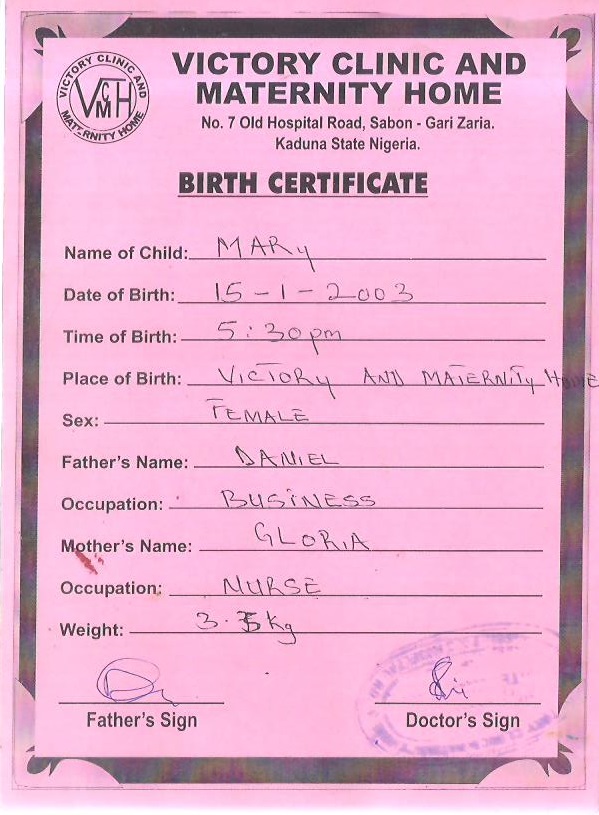 VICTORY CLINIC AND
MATERNITY HOME
VICTORY CLINIC AND
VCMH
MATERNITY HOME
No. 7 Old Hospital Road, Sabon - Gari Zaria.
Kaduna State Nigeria.
BIRTH CERTIFICATE
Name of Child: MARy
Date of Birth: 15-1-2003
Time of Birth: 5:30pm
Place of Birth: VICTORy AND MATERNiTy HOME
Sex: FEMALE
Father's Name: DANIEL
Occupation: BUSiNESS
Mother's Name: GLORiA
Occupation: NURSE
Weight: 3.5kg
Father's Sign
Doctor's Sign